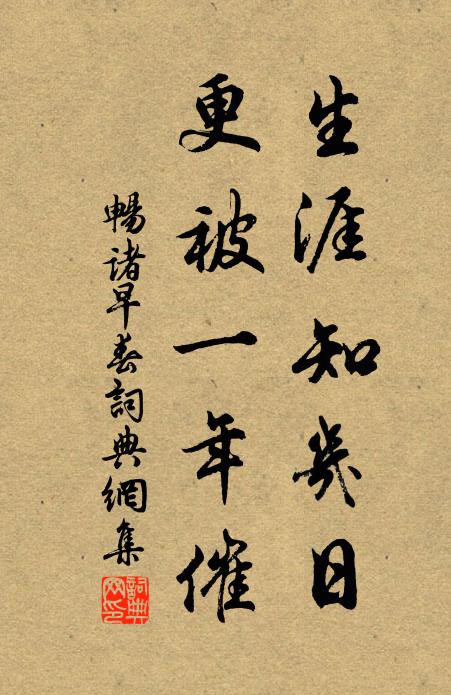 生涯知幾日
更被一年催
暢諸早春詞典網集
詞典網印